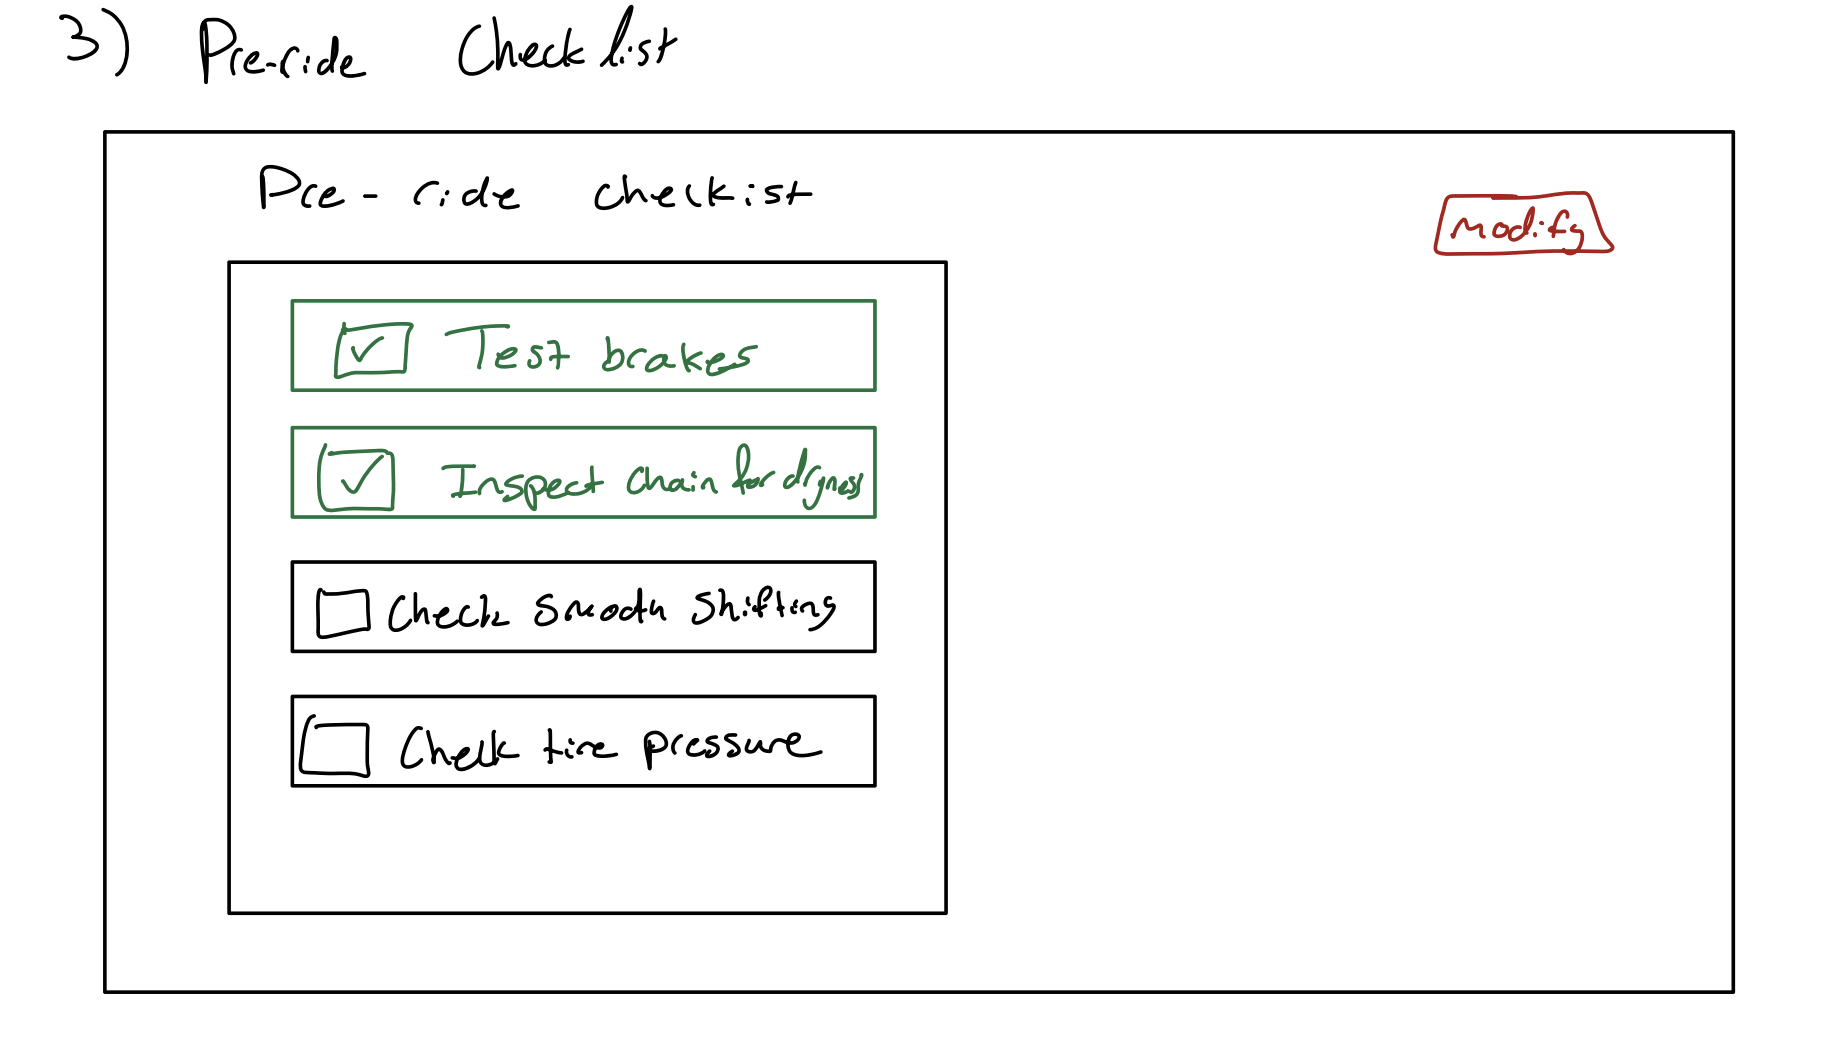 3) Pre-ride Checklist
Pre-ride checkist
modify
Test brakes
Inspect chain for dryness
Check smooth shifting
Check tire pressure